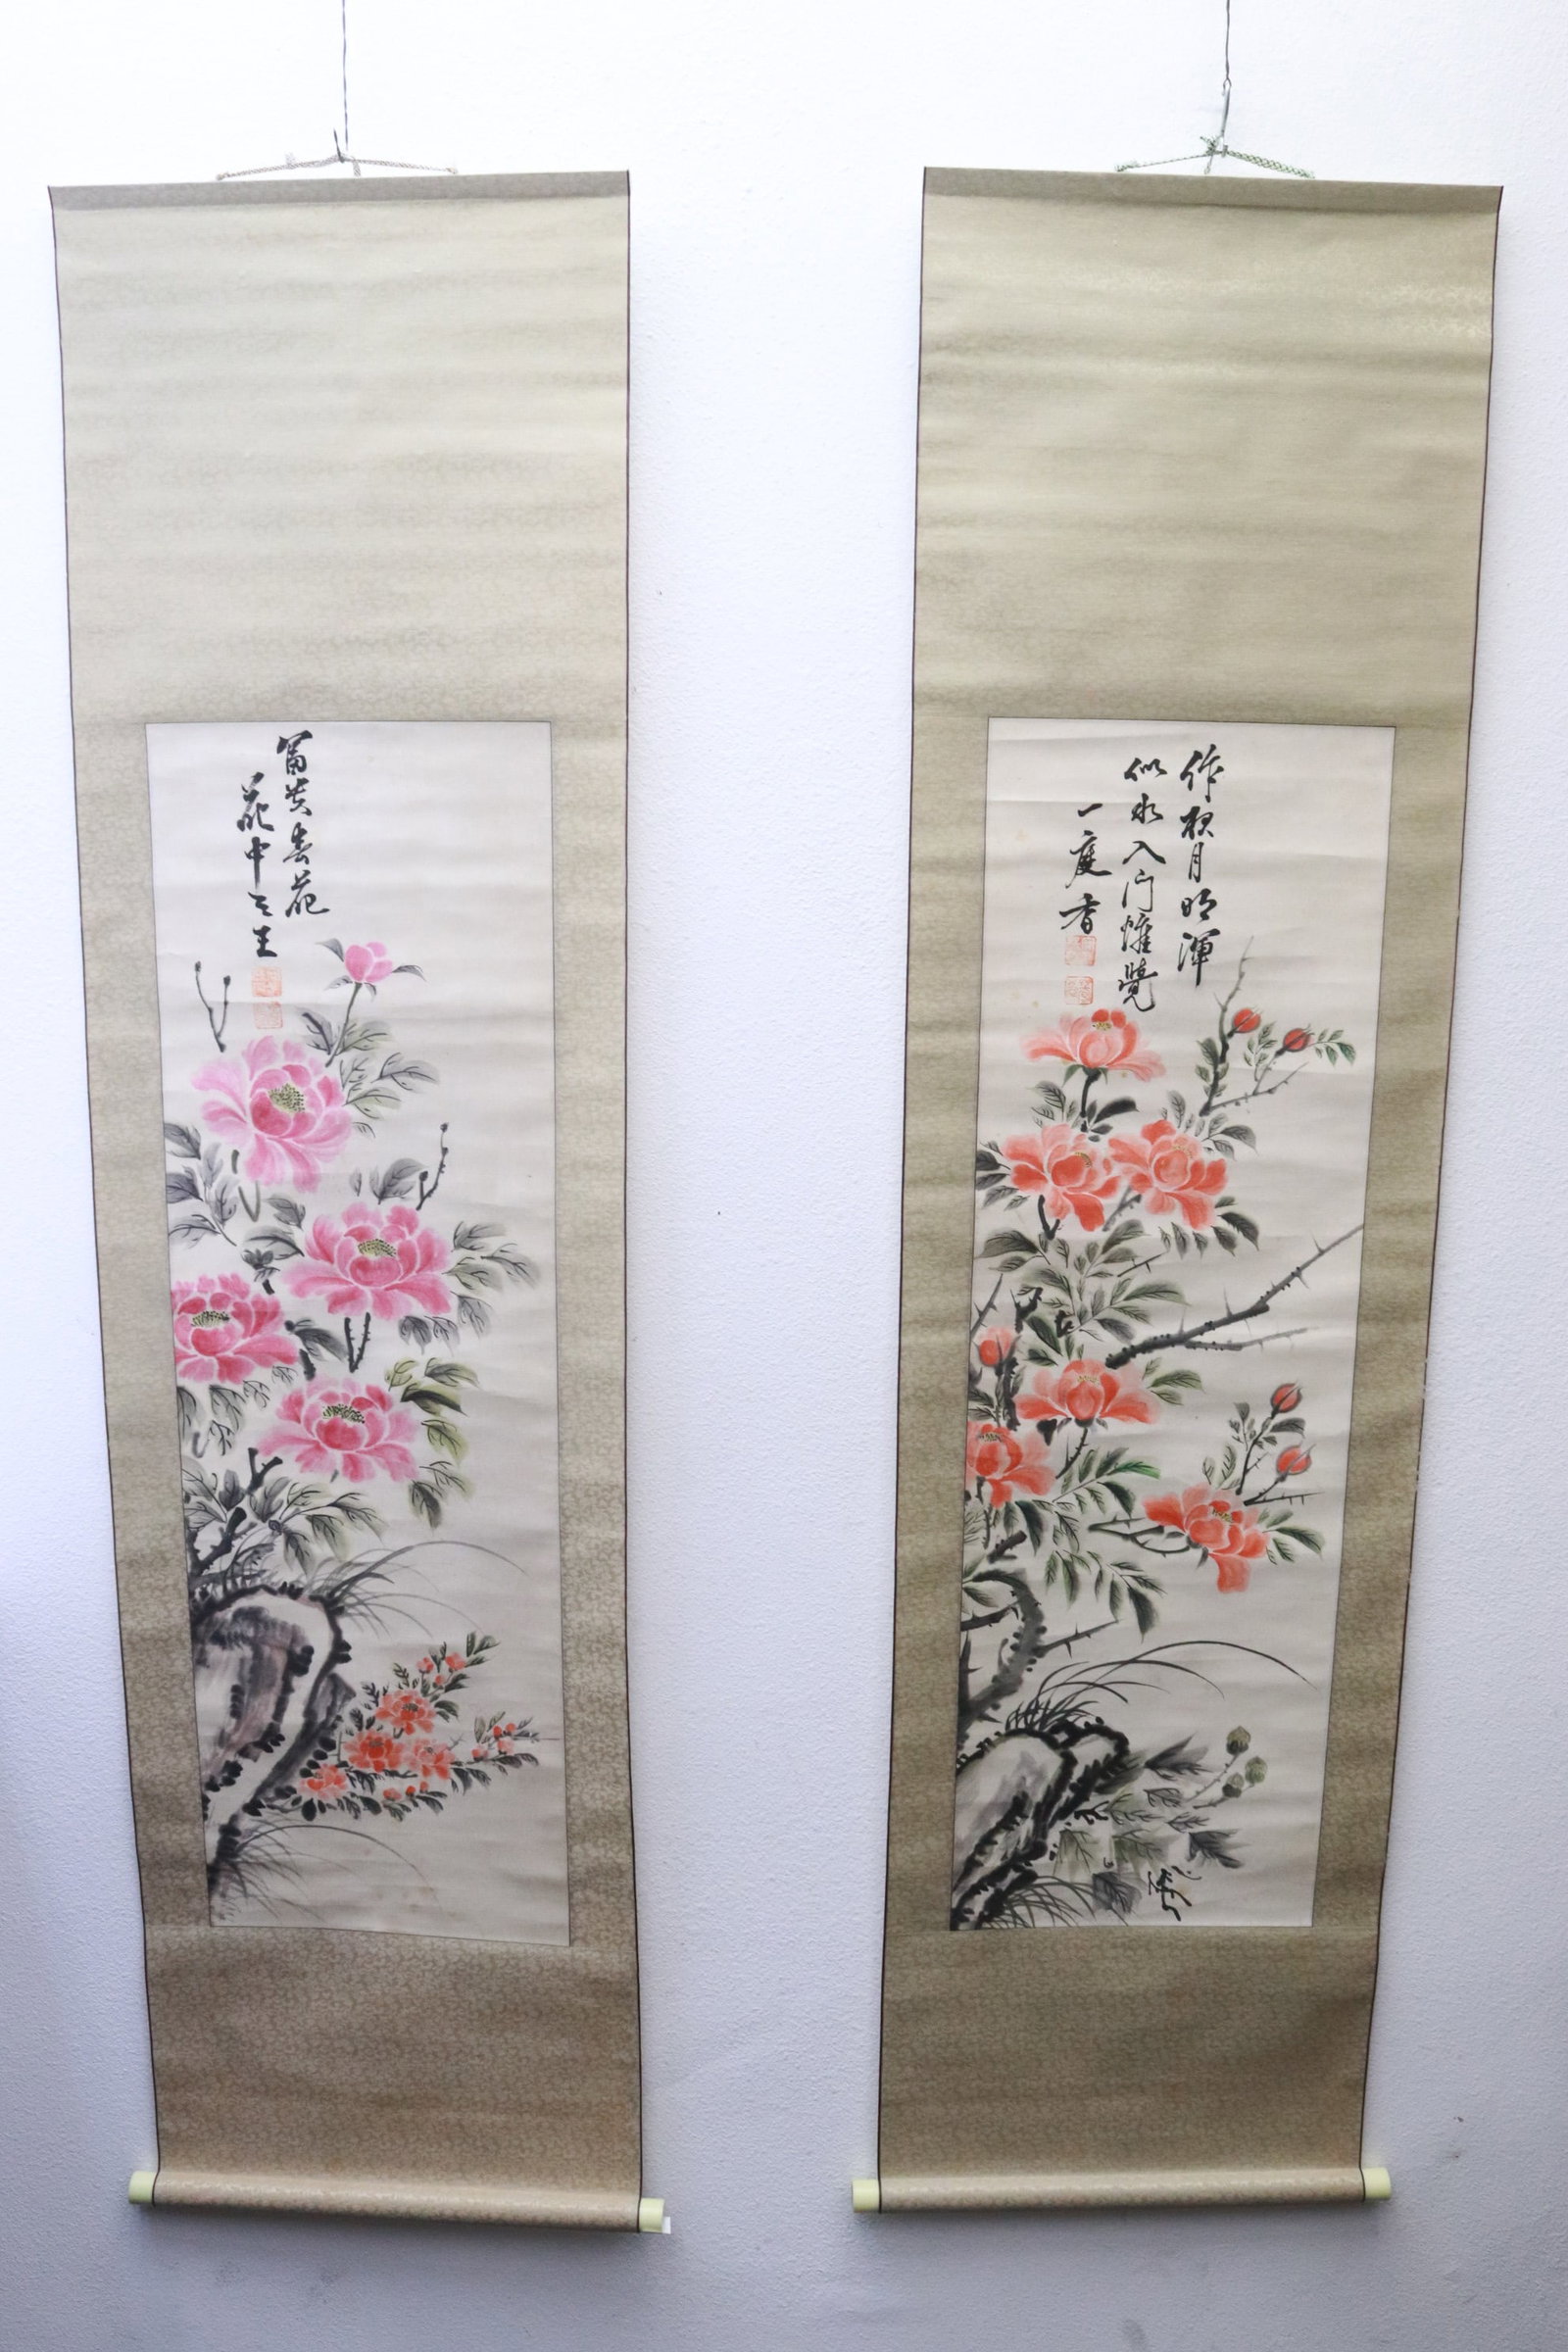 富貴春花
花中之王
作夜月明渾
似水入門惟覺
一庭香